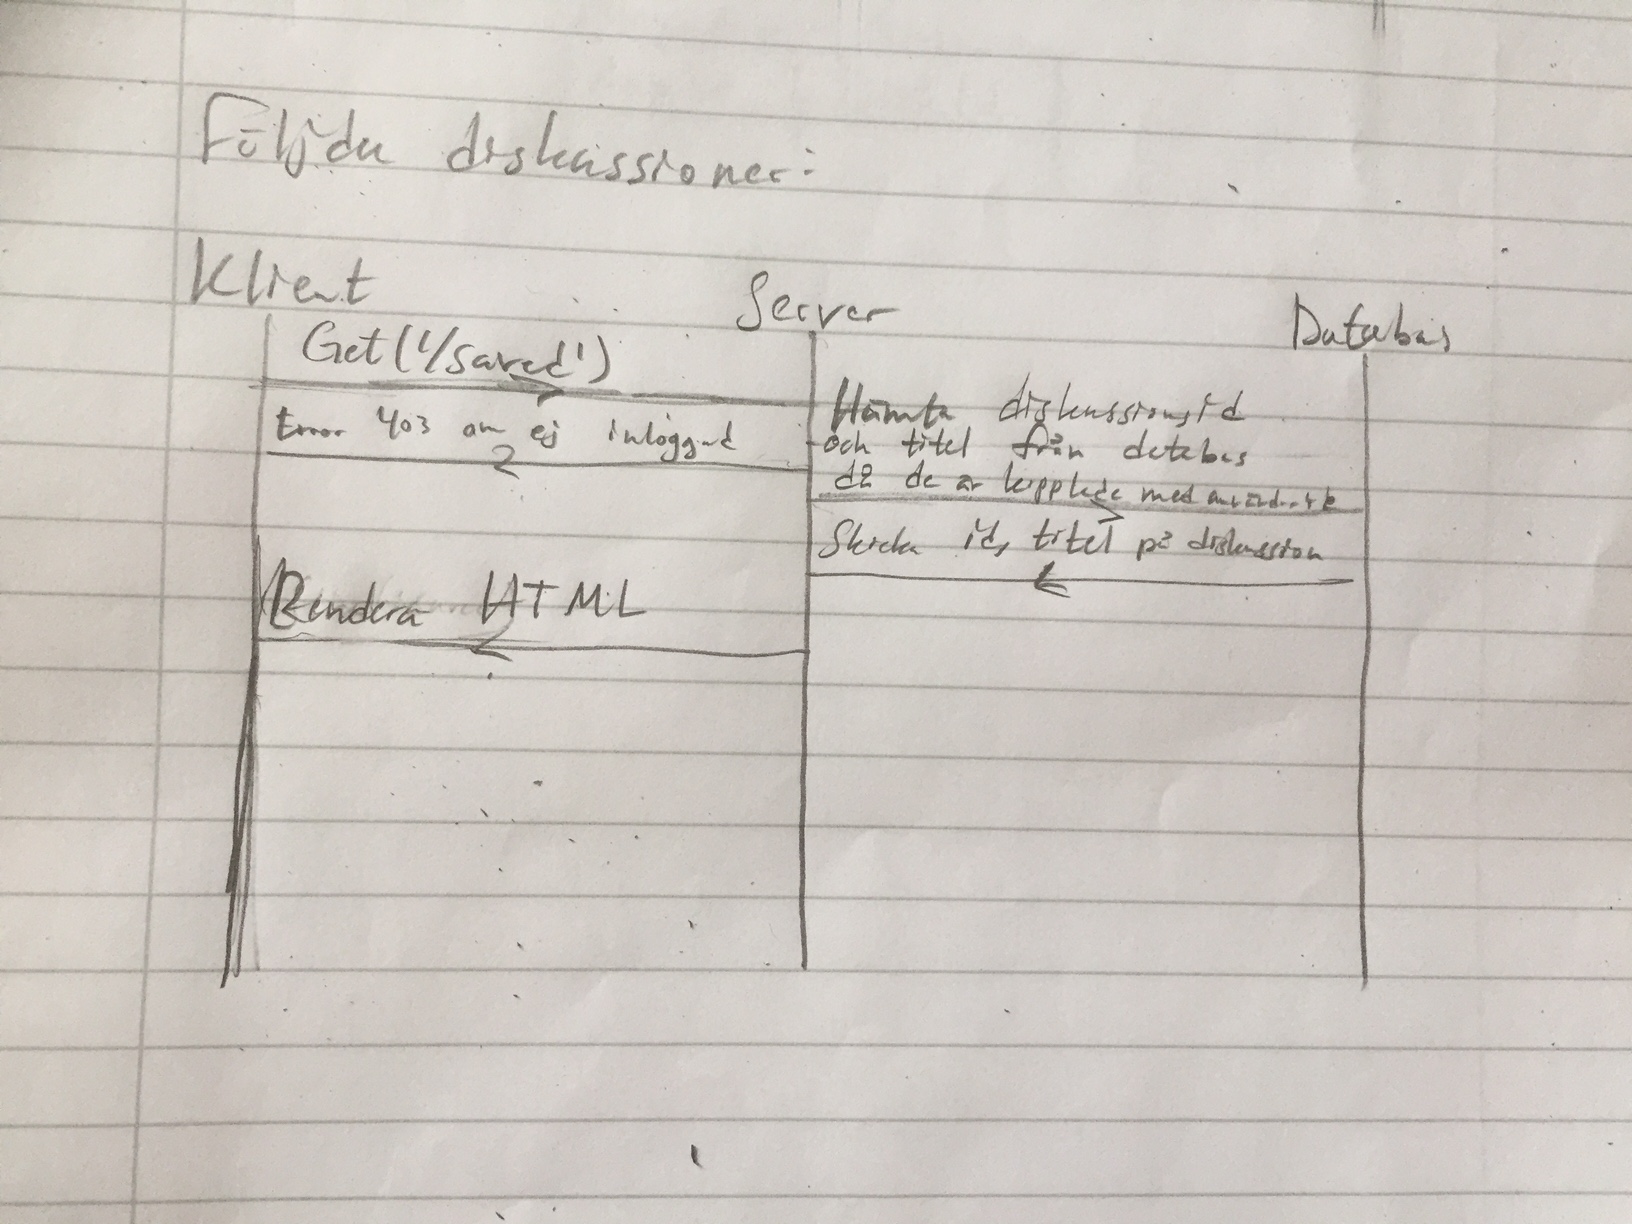 Följda diskussioner:
Klient
Server
Databas
Get('/saved')
Error 403 om ej inloggad
Hämta diskussionsid
och titel från databas
då de är kopplade med
Skicka id, titel på diskussion
Rendera HTML